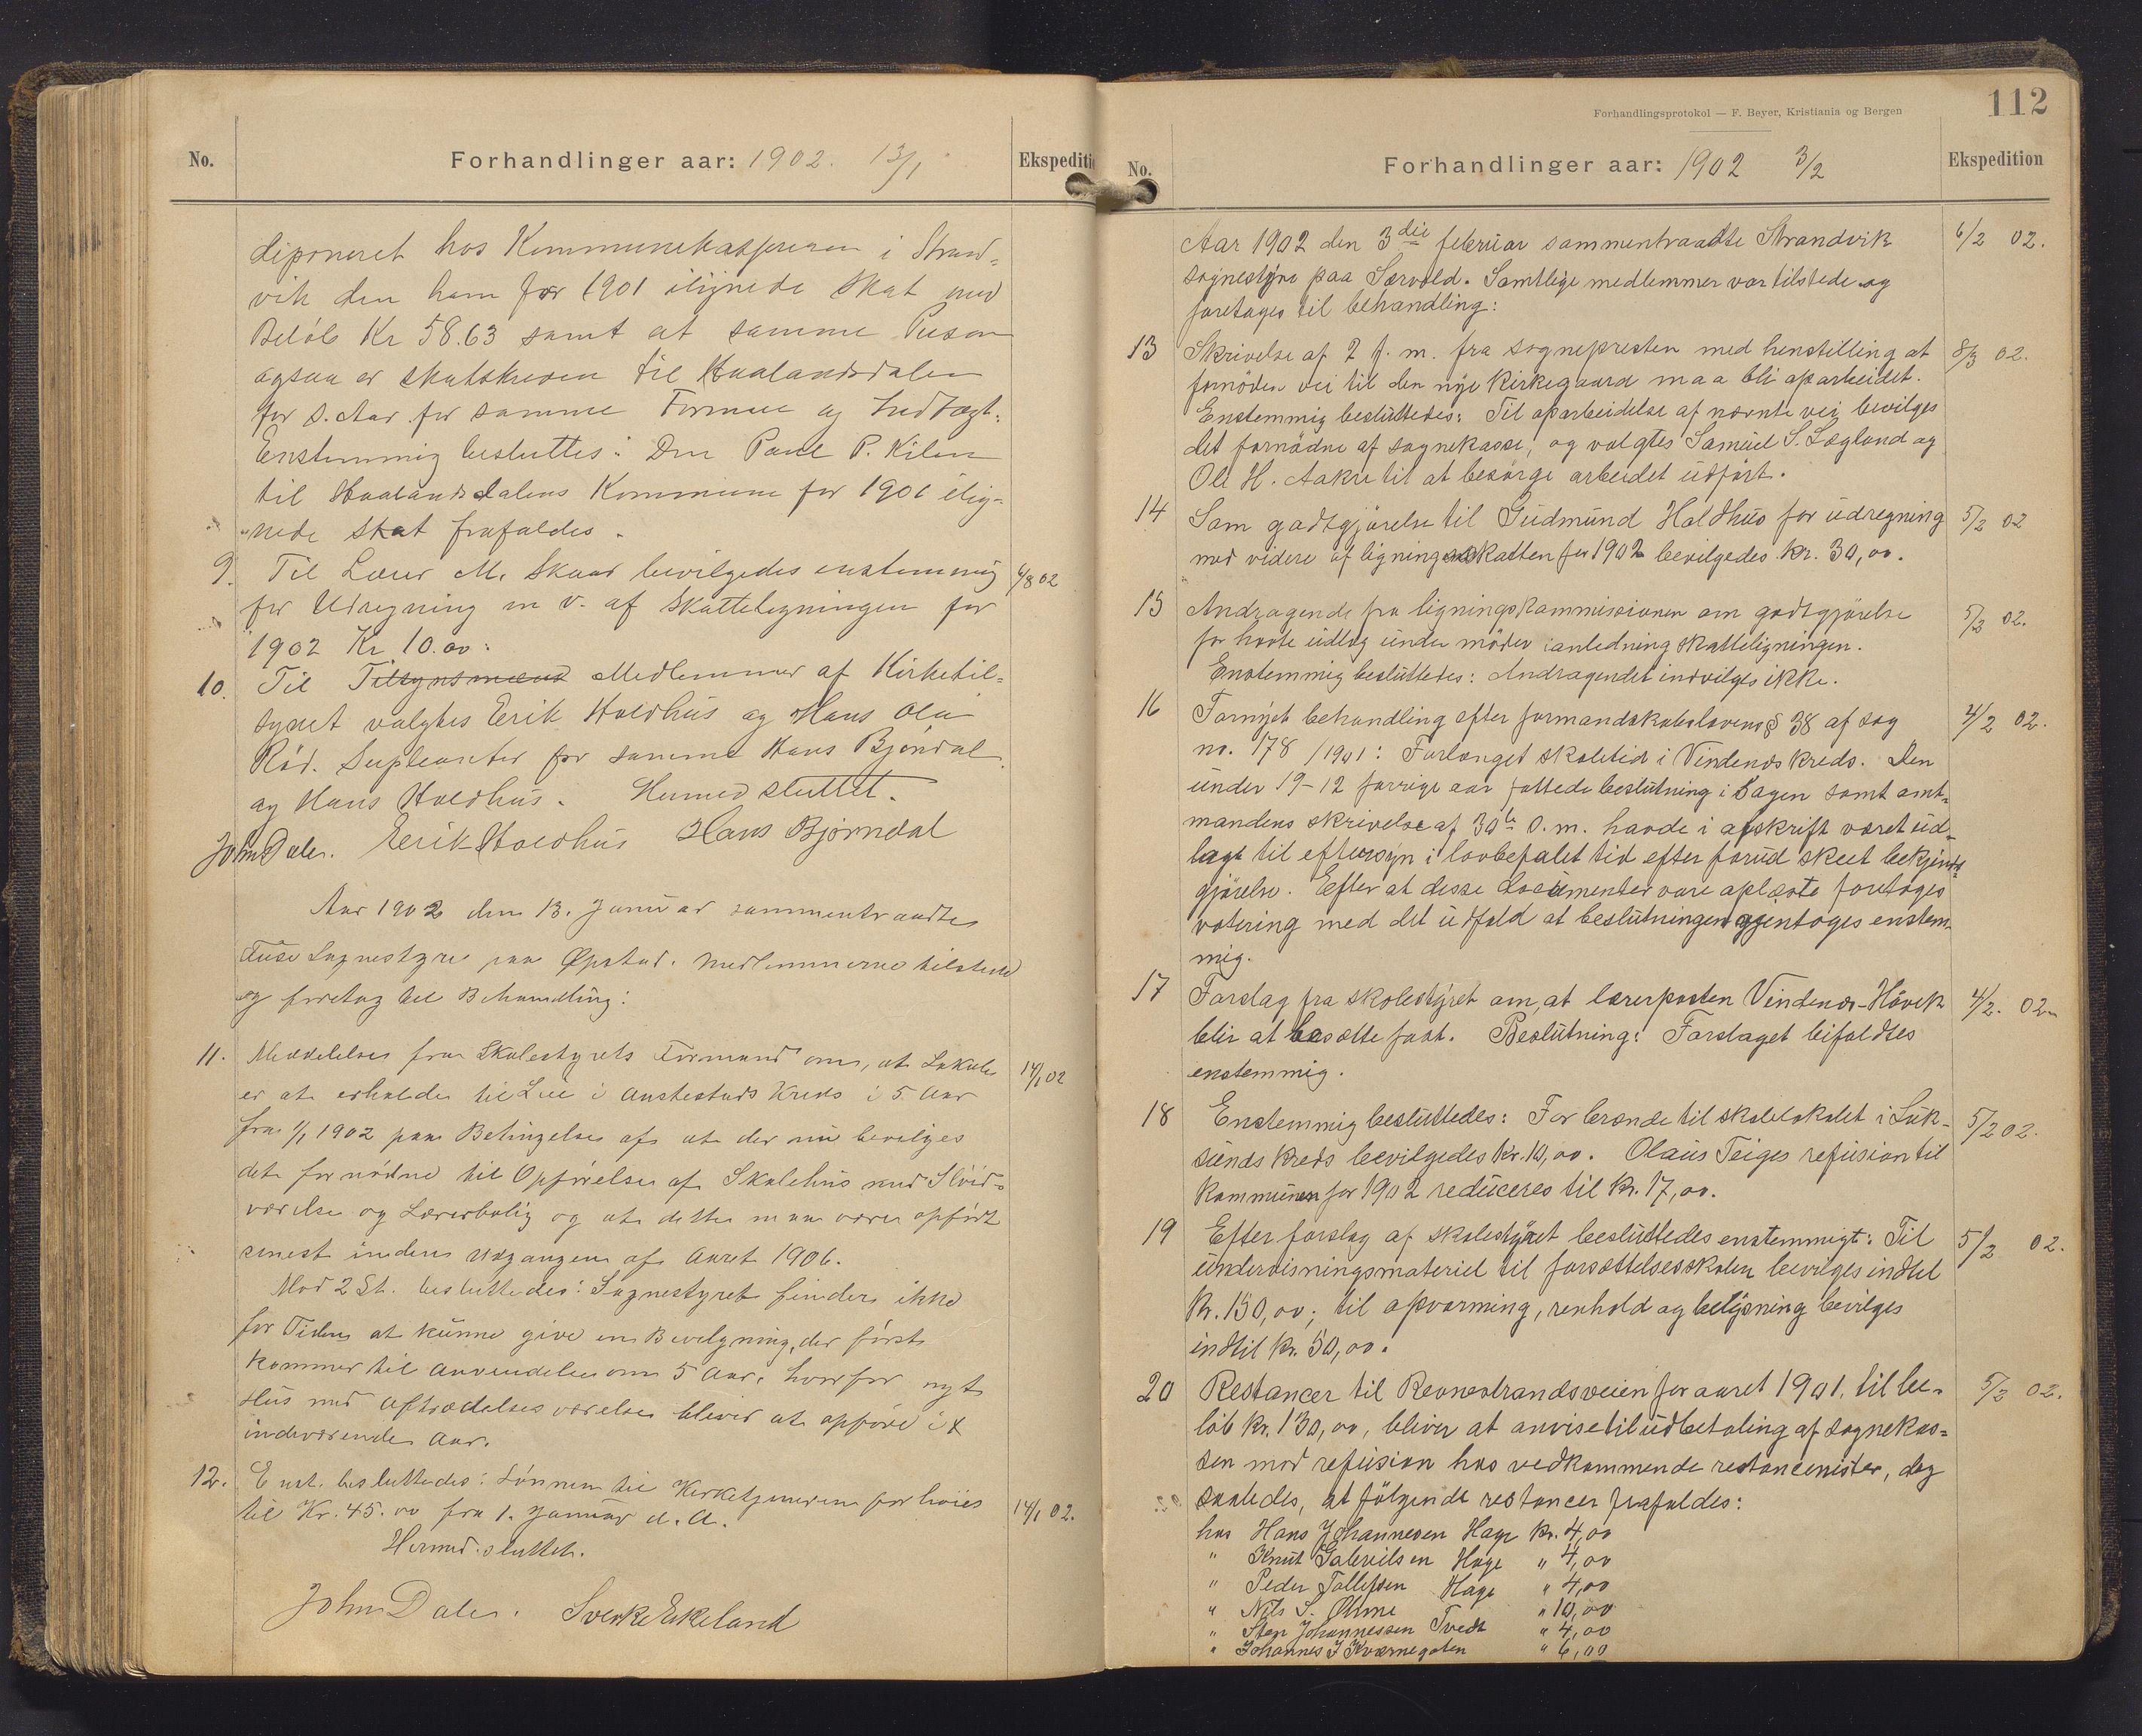 No.
Forhandlinger aar: 1902. 13/1
Ekspediti
diponeret hos Kommunekassereren i Strand=
vik den ham for 1901 ilignede Skat med
Beløb Kr 58.63 samt at samme Person
ogsaa er skatskreven til Haalandsdalen
for s. Aar for samme Formue og Indtægt.
Enstemmig besluttes: Den Paul P. Kilen
til Haalandsdalens Kommune for 1901 ilig=
nede Skat frafaldes.
9. Til Lærer M. Skaar bevilgedes enstemmig
for Udregning m v. af Skatteligningen for
1902 Kr 10.00.
10. Til Tilsynsmænd Medlemmer af Kirketil=
synet valgtes Eerik Holdhus og Hans Ola
Rød. Supleanter for samme Hans Bjørndal
og Hans Holdhus. Hermed sluttet.
John Dale. Eerik Holdhus Hans Bjørndal
Aar 1902 den 13. Januar sammentraadte
Fuse Sognestyre paa Øpstad. Medlemmerne tilstede
og foretog til Behandling:
11. Meddelelse fra Skolestyrets Formand om, at Lokale
er at erholde til Leie i Austestads Kreds i 5 Aar
fra 1/1 1902 paa Betingelse af at der nu beviliges
det fornødne til Opførelse af Skolehus med Sløid=
værelse og Lærerbolig og at dette maa være opført
senest inden Udgangen af Aaret 1906.
14/1 02
Mod 2 St. besluttedes: Sognestyret finder ikke
for Tiden at kunne give en Bevilgning, der først
kommer til Anvendelse om 5 Aar, hvorfor nyt
Hus med Aftrædelsesværelse bliver at opføre i
indeværende Aar.
12. Enst. besluttedes: Lønnen til Kirketjeneren forhøies
til Kr. 45.00 fra 1. Januar d. A.
14/1 02.
Hermed sluttet.
John Dale. Sverke Eikeland
Forhandlingsprotokol — F. Beyer, Kristiania og Bergen
112
No.
Forhandlinger aar: 1902 3/2
Ekspedition
Aar 1902 den 3die februar sammentraadte Strandvik
6/2 02.
sognestyre paa Særvold. Samtlige medlemmer var tilstede og
foretoges til behandling:
13 Skrivelse af 2 f. m. fra sognepresten med henstilling at
8/3 02.
fornöden vei til den nye kirkegaard maa bli oparbeidet.
Enstemmig besluttedes: Til oparbeidelse af nævnte vei bevilges
det fornödne af sognekasse, og valgtes Samuel S. Lægland og
Ole H. Aakre til at besörge arbeidet udfört.
14 Som godtgjörelse til Gudmund Holdhus for udregning
5/2 02
med videre af ligningsskatten for 1902 bevilgedes kr. 30,00.
15 Andragende fra ligningskommissionen om godtgjörelse
5/2 02.
for havte udlæg under möder i anledning skatteligningen.
Enstemmig besluttedes: Andragendet indvilges ikke.
16 Fornyet behandling efter formandskabslovens § 38 af sag
4/2 02.
no. 178/1901: Forlænget skoletid i Vindenæs kreds. Den
under 19-12 forrige aar fattede beslutning i sagen samt amt=
mandens skrivelse af 30te s. m. havde i afskrift været ud=
lagt til eftersyn i lovbefalet tid efter forud skeet bekjendt=
gjörelse. Efter at disse documenter vare oplæste foretoges
votering med det udfald at beslutningen gjentoges enstem=
mig.
17 Forslag fra skolestyret om, at lærerposten Vindenæs-Hövik
4/2. 02.
blir at besætte fast. Beslutning: Forslaget bifaldtes
enstemmig.
18 Enstemmig besluttedes: For brænde til skolelokalet i Luk=
5/2 02.
sunds kreds bevilgedes kr. 10,00. Olaus Teiges refusion til
kommunen for 1902 reduceres til kr. 17,00.
19 Efter forslag af skolestyret besluttedes enstemmigt: Til
5/2 02.
undervisningsmateriel til forsættelsesskolen bevilges indtil
kr. 150,00; til opvarming, renhold og belysning bevilges
indtil kr. 50,00.
20 Restancer til Revnestrandsveien for aaret 1901, til be=
5/2 02.
löb kr. 130,00, bliver at anvise til udbetaling af sognekas=
sen mod refusion hos vedkommende restancenister, dog
saaledes, at fölgende restancer frafaldes:
hos Hans Johannesen Hage kr. 4,00
" Knut Hage " 4,00
" Peder Tollefsen Hage " 4,00
" Nils S. Øhme " 10,00
" Sten Johannessen Tvedt " 4,00
" Johannes J Kværnegoten " 6,00